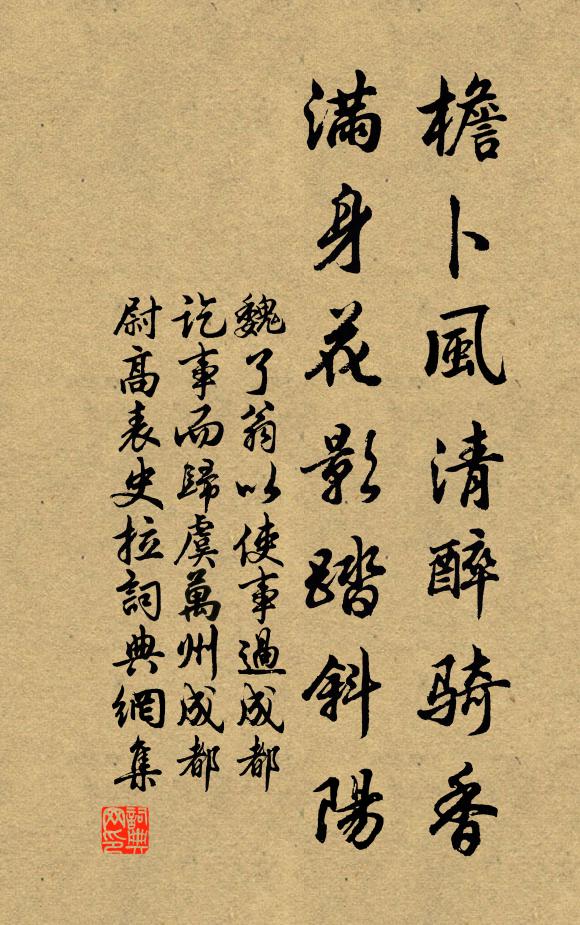 檐卜風清醉骑香
滿身花影踏斜陽
魏了翁以使事過成都
訖事而歸虞萬州成都
尉高表史拉詞典網集
詞典
网印